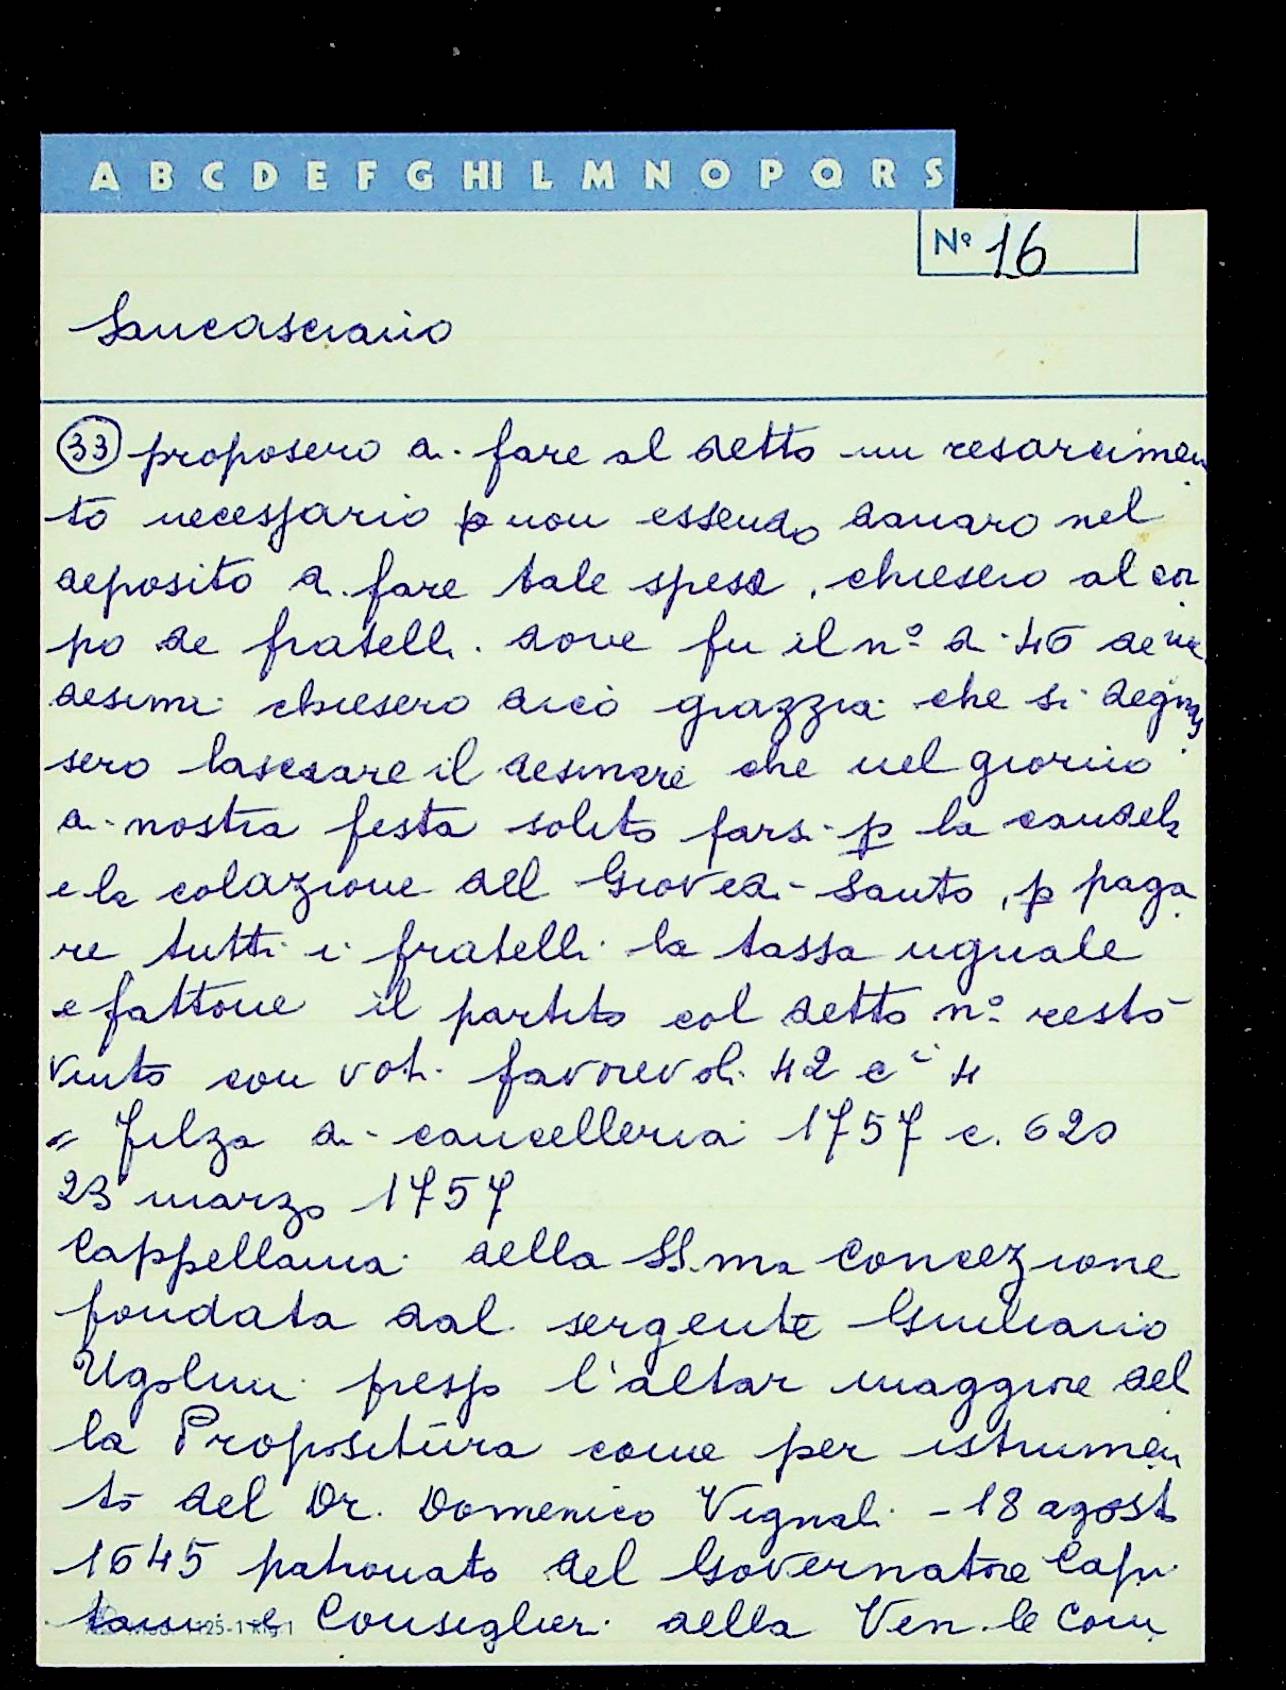 A B C D E F G HI L M N O P Q R S
Nº 16
Sancasciano
33 proposero di fare al detto un resarcimen
to necessario p non essendo danaro nel
deposito di fare tale spesa, chiesero al cor
po de fratelli dove fu il nº di 46 de me
desimi chiesero di ciò grazzia che si degnas
sero lasciare il desinare che nel giorno
di nostra festa solito farsi p la candela
e la colazione del Giovedi Santo, p paga
re tutti i fratelli la tassa uguale
e fattone il partito col detto nº restò
vinto con voti favorevoli 42 c i 4
= filza di cancelleria 1757 c. 620
23 marzo 1757
Cappellania della SS.ma Concezione
fondata dal sergente Giuliano
Ugolini presso l'altar maggiore del
la Propositura come per istrumen
to del Dr. Domenico Vignali - 18 agosto
1645 patronato del Governatore Capi
tani e Consiglieri della Ven.le Com